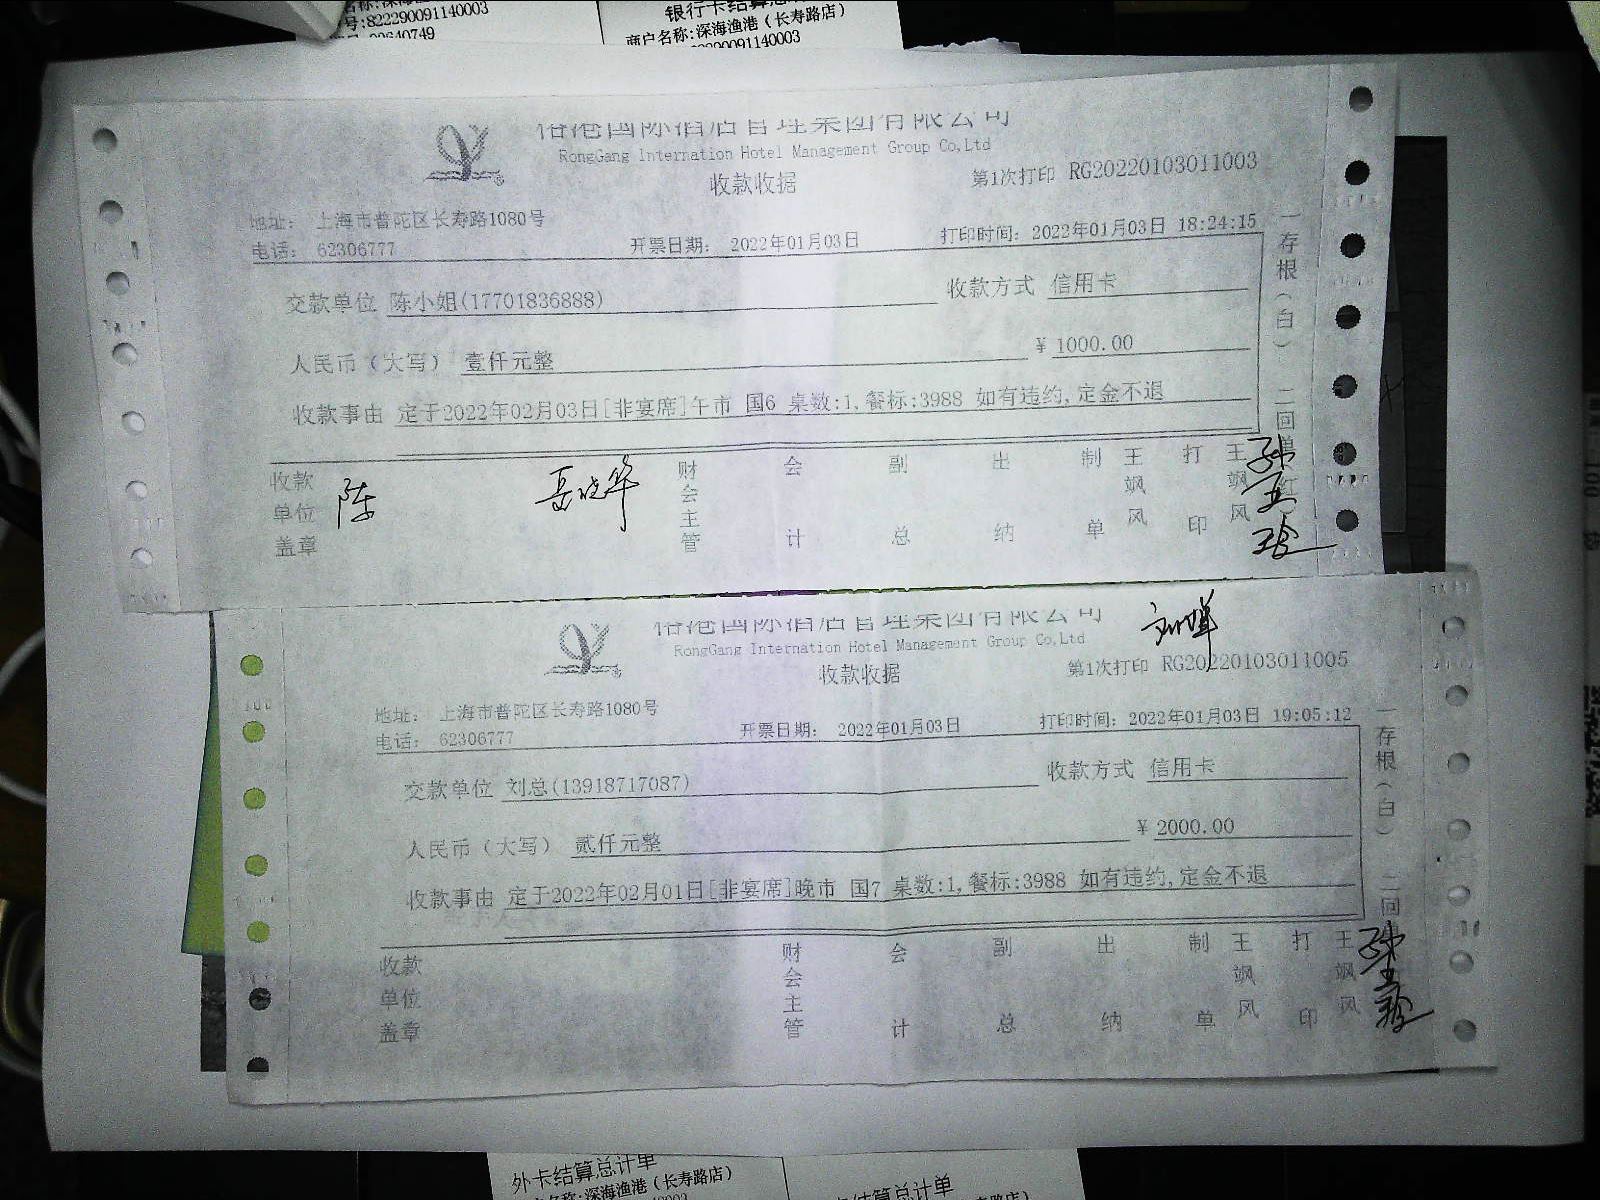 号:822290091140003
02640749
银行卡结算总
商户名称:深海渔港（长寿路店）
92290091140003
RongGang Internation Hotel Management Group Co,Ltd
收款收据
第1次打印 RG20220103011003
地址： 上海市普陀区长寿路1080号
电话： 62306777
开票日期： 2022年01月03日
打印时间：2022年01月03日 18:24:15
交款单位 陈小姐(17701836888)
收款方式 信用卡
人民币（大写） 壹仟元整
¥ 1000.00
收款事由 定于2022年02月03日[非宴席]午市 国6 桌数:1,餐标:3988 如有违约,定金不退
一存根（白） 二回单 红
收款单位盖章
陈
岳晓华
财会主管
会计
副总
出纳
制单
王飒风
打印
王飒风
国际酒店管理集团有限公司
RongGang Internation Hotel Management Group Co,Ltd
收款收据
第1次打印 RG20220103011005
地址： 上海市普陀区长寿路1080号
电话： 62306777
开票日期： 2022年01月03日
打印时间：2022年01月03日 19:05:12
交款单位 刘总(13918717087)
收款方式 信用卡
人民币（大写） 贰仟元整
¥ 2000.00
收款事由 定于2022年02月01日[非宴席]晚市 国7 桌数:1,餐标:3988 如有违约,定金不退
一存根（白） 二回
收款单位盖章
财会主管
会计
副总
出纳
制单
王飒风
打印
王飒风
外卡结算总计单
名称:深海渔港（长寿路店）
卡结算总计单